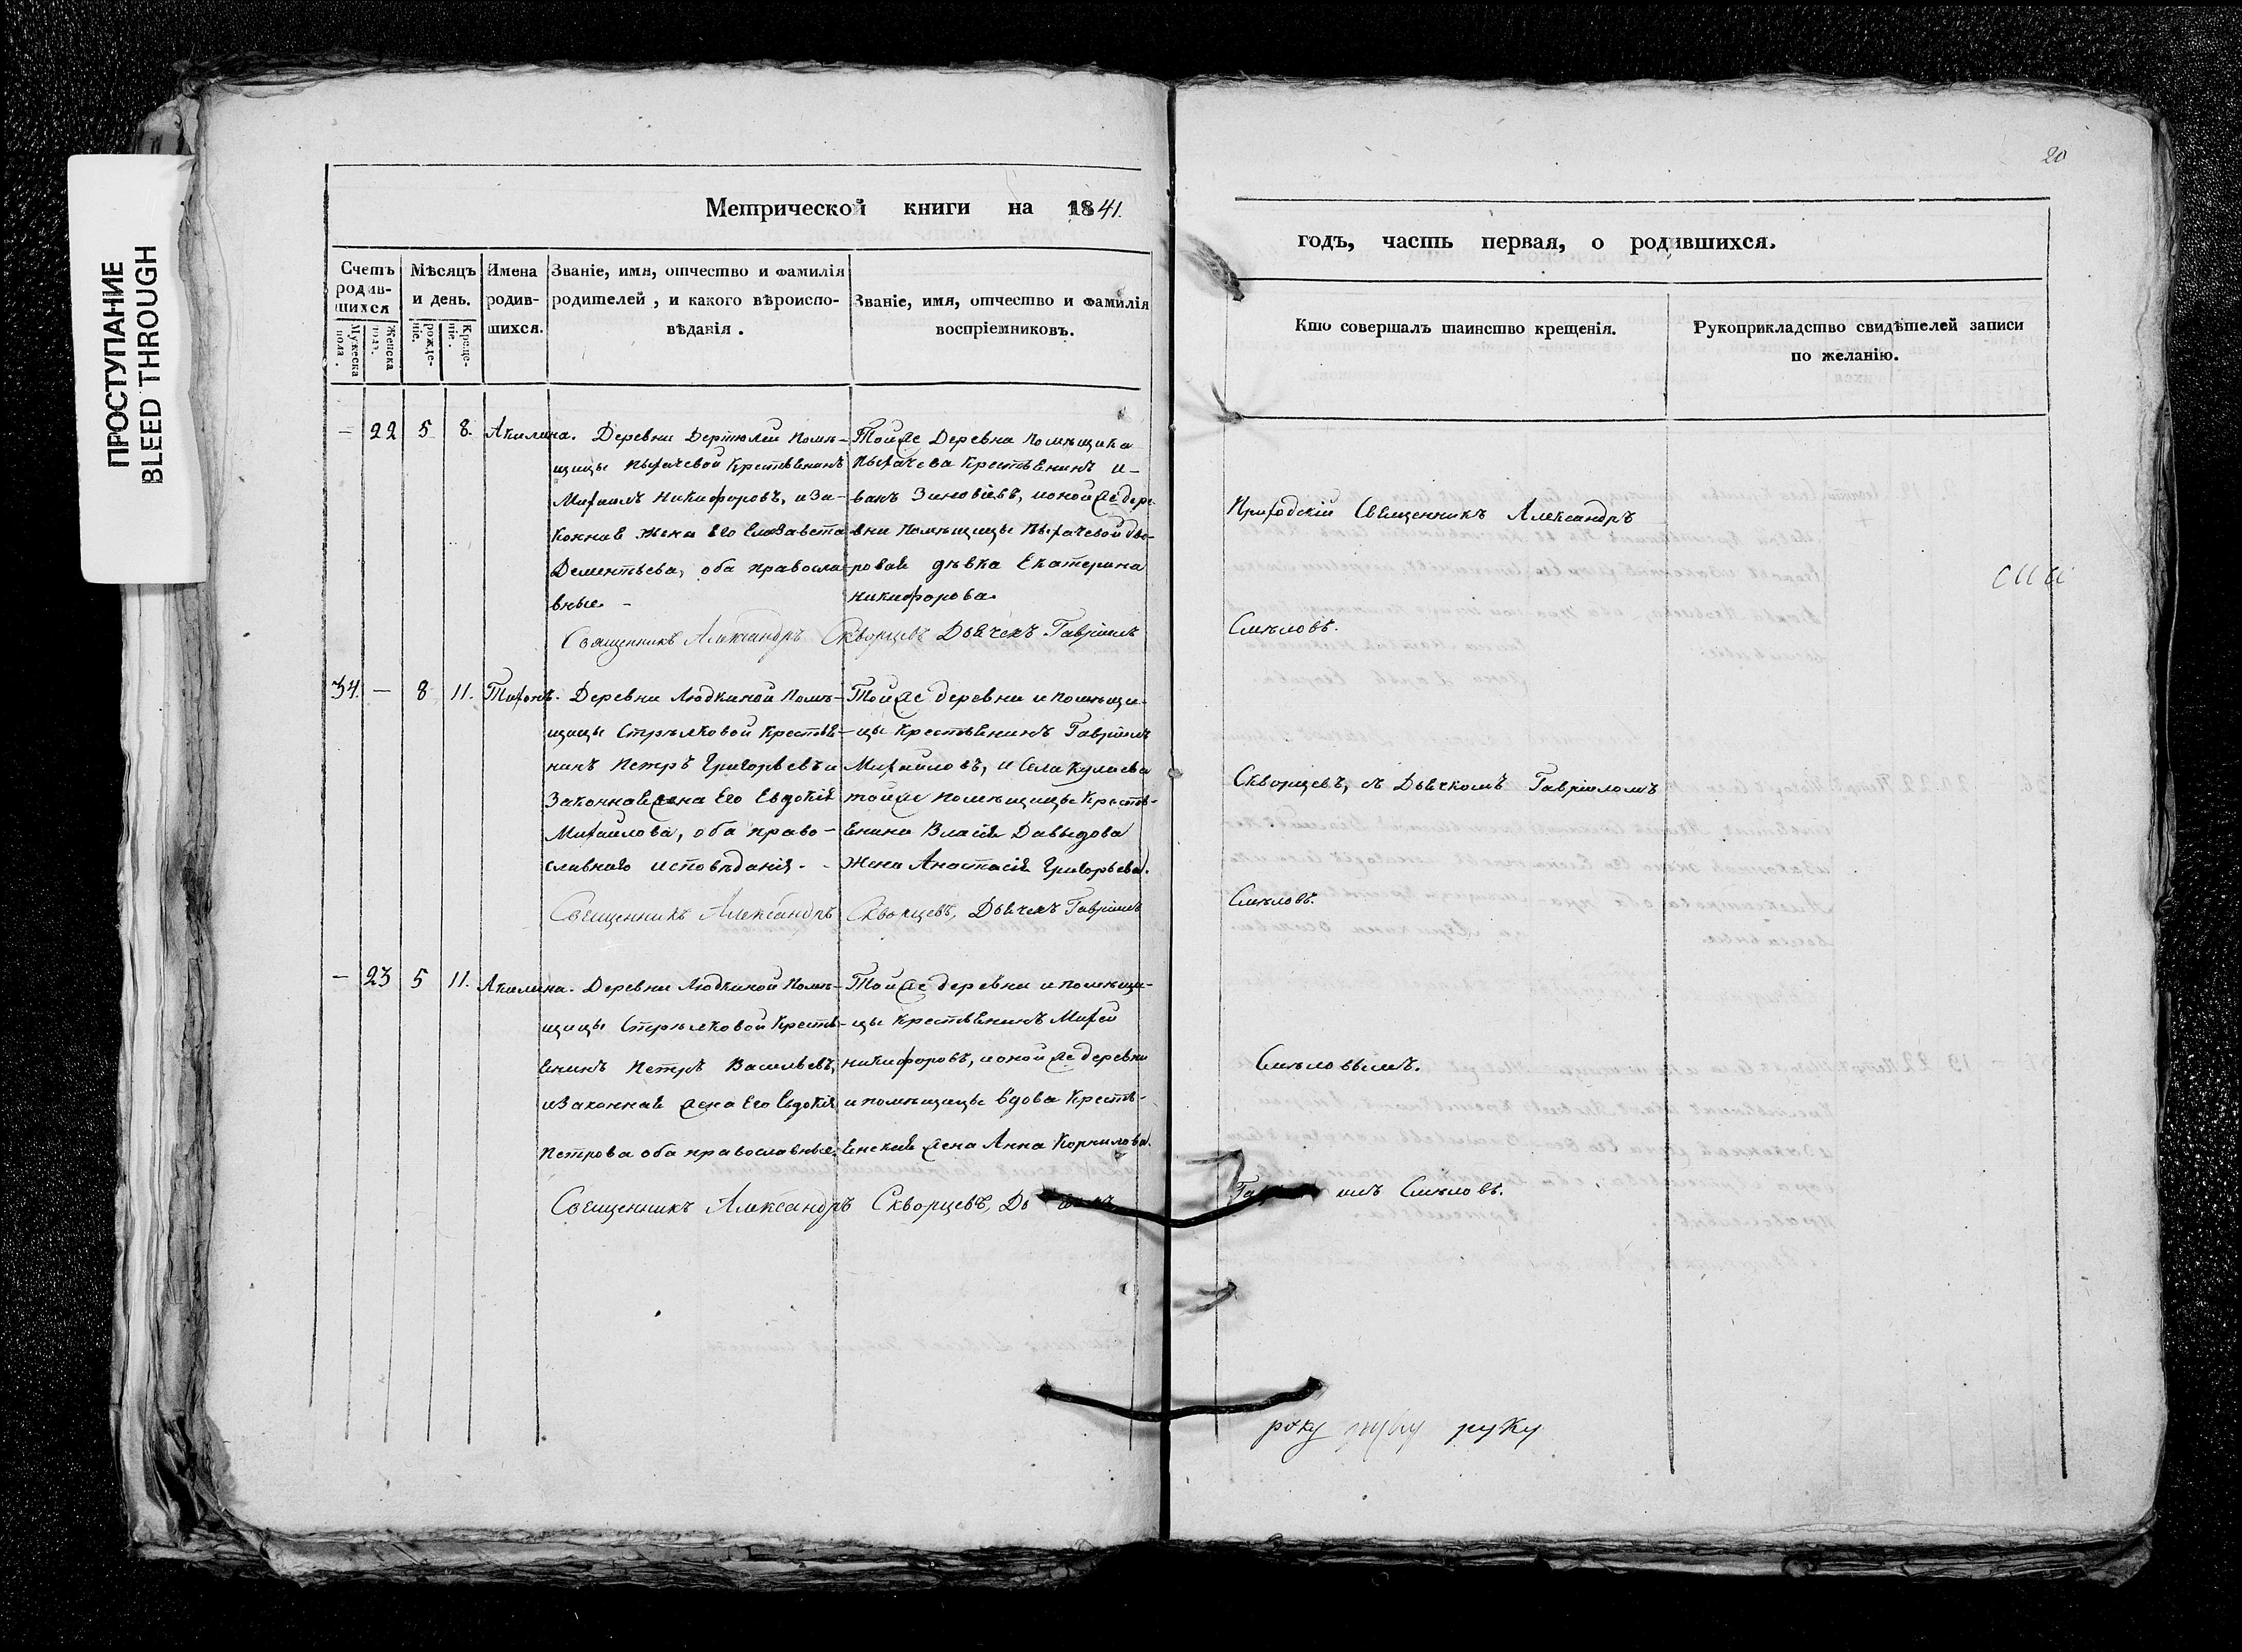 ПРОСТУПАНИЕ
BLEED THROUGH
20
Метрической книги на 1841.
годъ, часть первая, о родившихся.
Счетъ родив-шихся
Мужеска пола.
Женска пола.
Мѣсяцъ и день.
рожде-ніе.
Креще-ніе.
Имена родив-шихся.
Званіе, имя, отчество и фамилія
родителей, и какого вѣроиспо-
вѣданія.
Званіе, имя, отчество и фамилія
воспріемниковъ.
Кто совершалъ таинство крещенія.
Рукоприкладство свидѣтелей записи
по желанію.
— 22 5 8. Акилина.
Деревни Дертюлей Помѣ-
щицы Пыхачевой Крестьянинъ
Михаилъ Никифоровъ, и за-
конная жена его Елизавета
Дементьева, оба правосла-
вные.
Тойже Деревни помѣщика
Пыхачева Крестьянинъ И-
ванъ Зиновіевъ, и онойже дере-
вни помѣщицы Пыхачевой дво-
ровая дѣвка Екатерина
Никифорова.
Приходскій Священникъ Александръ
Священникъ Александръ Скворцевъ Дьячекъ Гавріилъ
Смѣловъ.
34. — 8 11. Тихонъ.
Деревни Людкиной Помѣ-
щицы Стрѣлковой Крестья-
нинъ Петръ Григорьевъ и
Законная жена Его Евдокія
Михаилова, оба право-
славнаго исповѣданія.
Тойже деревни и помѣщи-
цы Крестьянинъ Гавріилъ
Михайловъ, и Села Кулаева
тойже помѣщицы Крестья-
янина Власія Давыдова
жена Анастасія Григорьева.
Скворцевъ, съ Дьячкомъ Гавріиломъ
Священникъ Александръ Скворцевъ, Дьячекъ Гавріилъ
Смѣловъ.
— 23 5 11. Акилина.
Деревни Людкиной Помѣ-
щицы Стрѣлковой Кресть-
янинъ Петръ Васильевъ,
и Законная жена Его Евдокія
Петрова оба православные.
Тойже деревни и помѣщи-
цы Крестьянинъ Михей
Никифоровъ, и онойже деревни
и помѣщицы вдова Кресть-
янская жена Анна Корнилова.
Смѣловымъ.
Священникъ Александръ Скворцевъ,
Смѣловъ.
руку